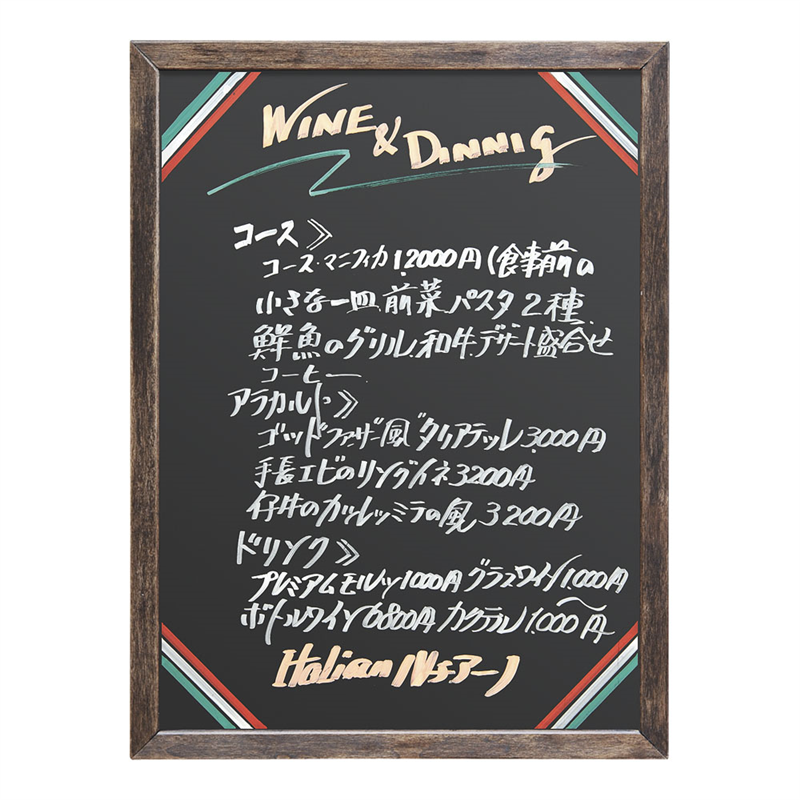 WINE & DINNIG
コース》
コース・マニフィカ 12000円(食事前の
小さな一皿.前菜.パスタ2種.
鮮魚のグリル.和牛.デザート盛合せ
コーヒー.
アラカルト》
ゴッドファーザー風タリアテッレ3.000円
手長エビのリングイネ3200円
仔牛のカツレツミラノ風 3200円
ドリンク》
プレミアムモルツ1000円グラスワイン1.000円
ボトルワイン6800円カクテル1.000〜円
Italian